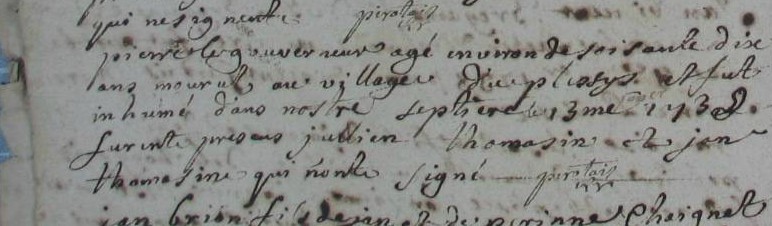 qui ne signente
pierre le gouverneur agé environ de soisante dix
ans mourut au village du plessys et fut
inhumé dans nostre septiere le 13me 1738
furente presens jullien thomasin et jan
thomasine qui nonte signé
jan brion fils de jan et de perinne Choignet